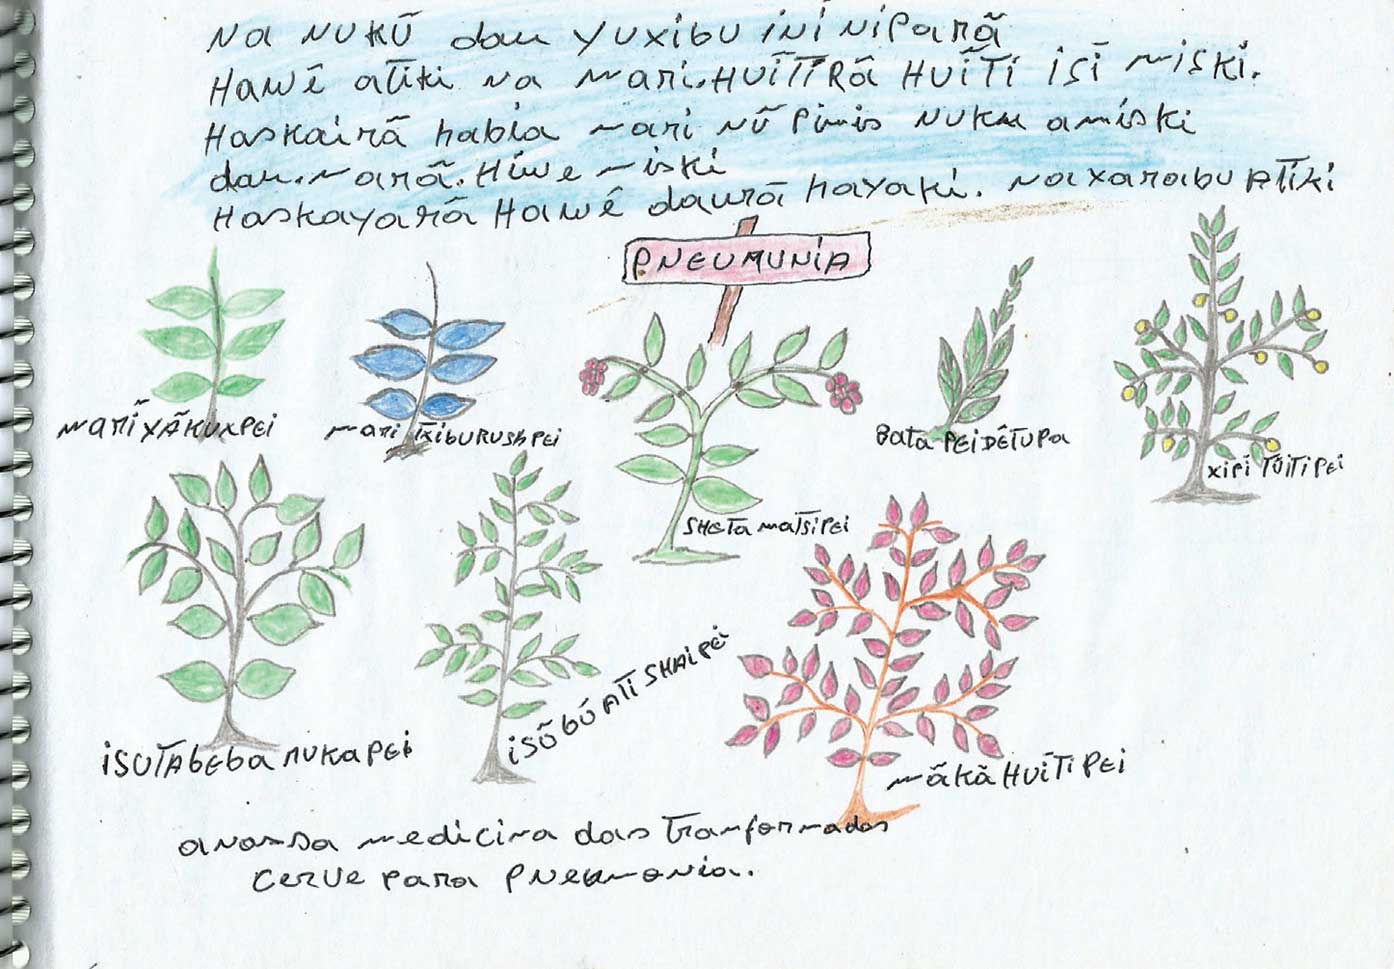 Na nukũ dau yuxibu ini niparã
Hawẽ atiki na mari. Huĩtirã Huĩti isĩ miski.
Haskairã habia mari nũ pimis nuku amiski
dau. marã. Hiwe miski
Haskayarã Hawẽ daurã hayaki. Na xarabu atiki
PNEUMUNIA
mari xãkuxpei
mari txiburushpei
Sheta matsipei
Bata pei dêtupa
xipi tüiti pei
isutabeba nuka pei
isõbú ati shaipei
mãkã huiti pei
a nossa medicina das tranformadas
cerve para pneumonia.